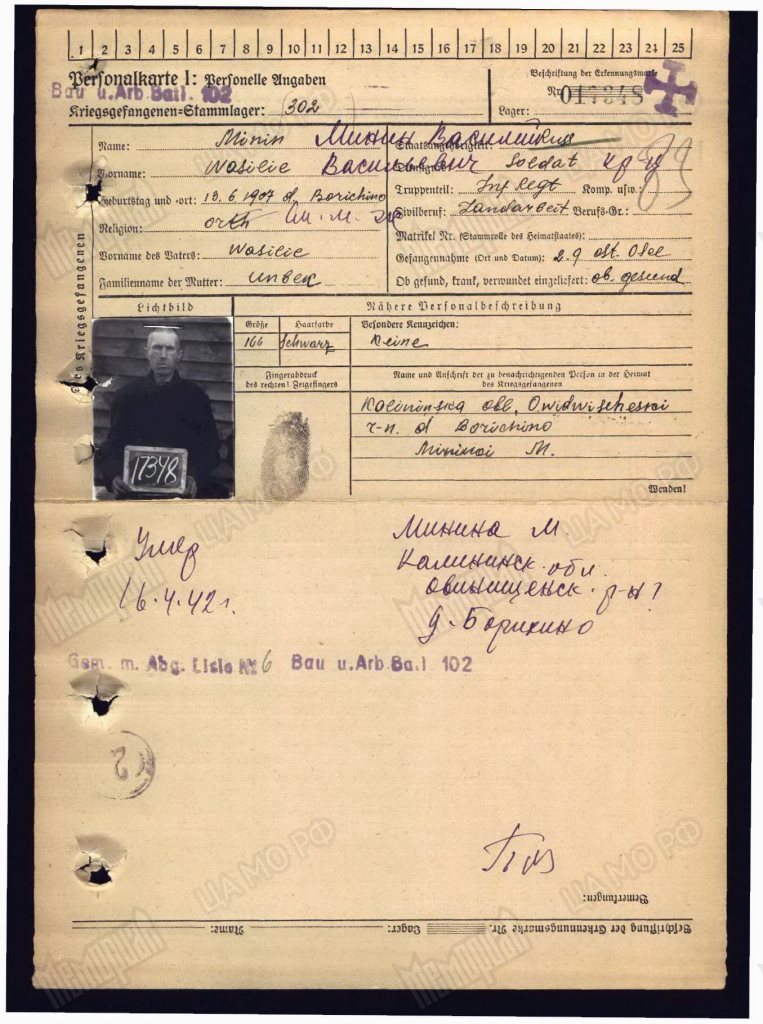 1 2 3 4 5 6 7 8 9 10 11 12 13 14 15 16 17 18 19 20 21 22 23 24 25
Personalkarte I: Personelle Angaben
Bau u. Arb. Batl. 102
Kriegsgefangenen-Stammlager: 302
Beschriftung der Erkennungsmarke
Nr. 017348
Lager:
Des Kriegsgefangenen
Name: Minin Минин Василий
Vorname: Wasilie Васильевич
Geburtstag und -ort: 13.6.1907 d. Borichino
Religion: orth
Vorname des Vaters: Wasilie
Familienname der Mutter: Unbek
Staatsangehörigkeit: Rus
Dienstgrad: Soldat
Truppenteil: Inf Regt Komp. usw.:
Zivilberuf: Landarbeit Berufs-Gr.:
Matrikel Nr. (Stammrolle des Heimatstaates):
Gefangennahme (Ort und Datum): 2.9 ost. Osel
Ob gesund, krank, verwundet eingeliefert: ob. gesund
Lichtbild
17348
Nähere Personalbeschreibung
Größe Haarfarbe Besondere Kennzeichen:
166 schwarz Keine
Fingerabdruck
des rechten! Zeigefingers
Name und Anschrift der zu benachrichtigenden Person in der Heimat
des Kriegsgefangenen
Kalininska obl.
r-n. d Borichino
Mininoi M.
Wenden!
Умер
16.4.42 г.
Минина М.
Калининск. обл.
Овинищенск. р-н?
д. Борихино
Gem. m. Abg. Liste № 6 Bau u. Arb. Batl. 102
2
Bemerkungen:
Beschriftung der Erkennungsmarke Nr. Lager: Name:
ЦАМО РФ
Мемориал